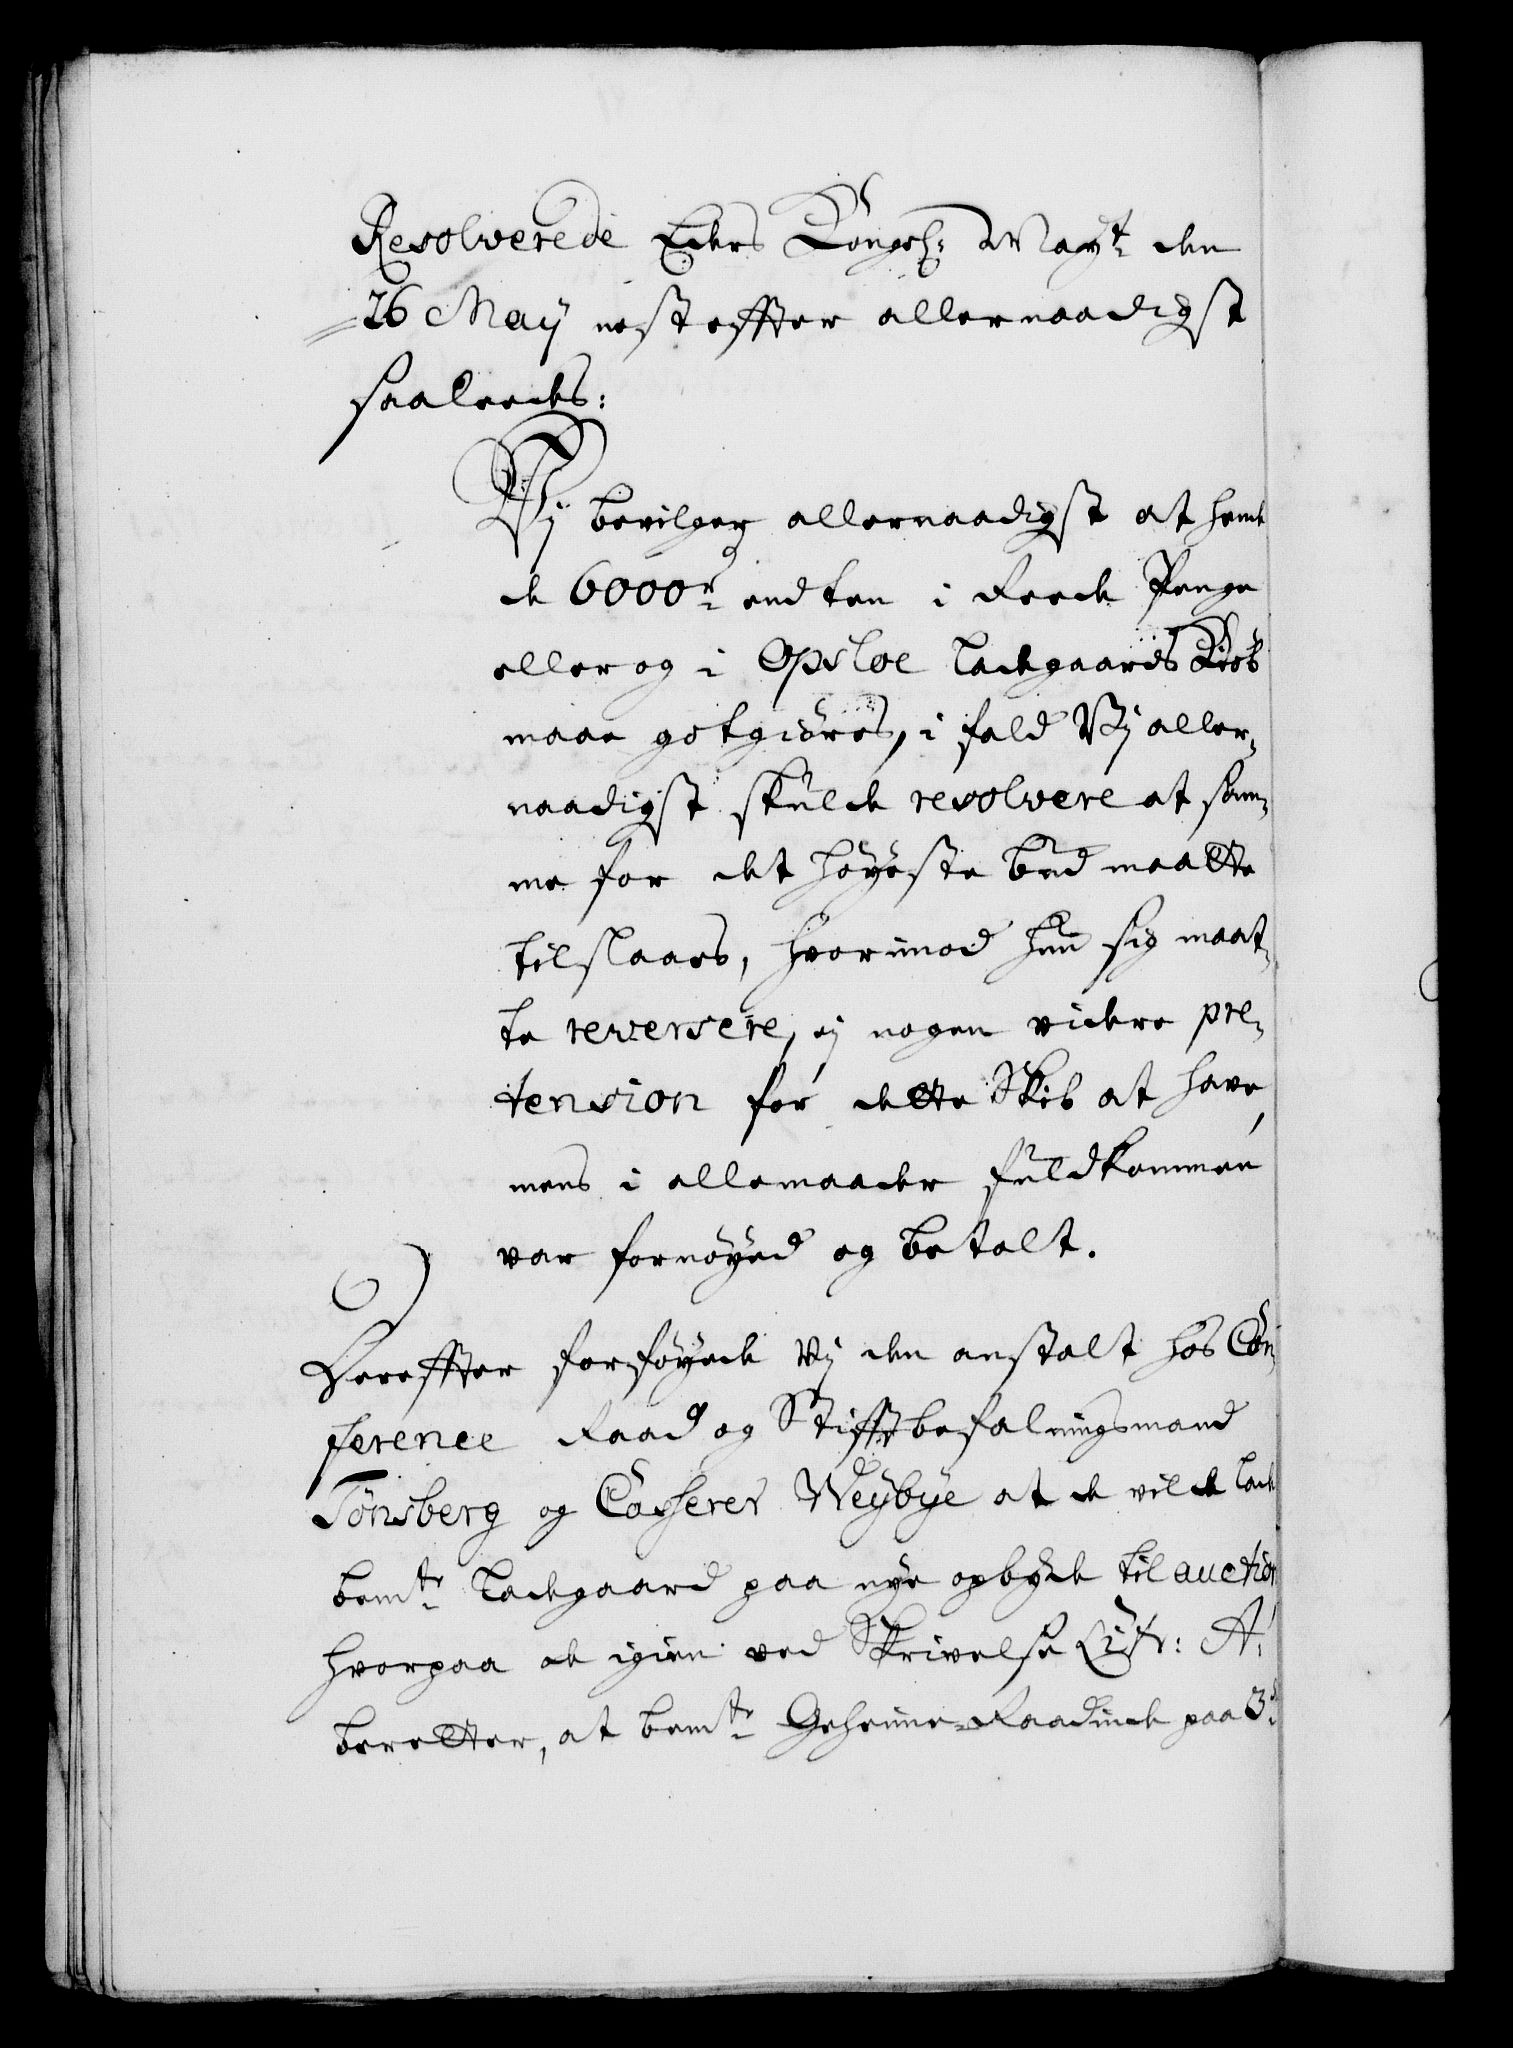 Resolverede Eders Kongel: Mayt: den
26 May nest effter allernaadigst
saaleedes:
Vj bevilger allernaadigst at hende
de 6000 r: endten i Reede Penge
eller og i Opsloe ladegaards Kiøb
maae gotgiøres, i fald Vj aller-
naadigst skulde resolvere at sam-
me for det høyeste bud maatte
tilslaaes, hvorimod hun sig maat-
te reversere, ej nogen videre pre-
tension for dette Skib at have,
mens i allemaader fuldkommen
var fornøyed og betalt.
Dereffter forføyede Vj den anstalt hos Con-
ference Raad og Stifftbefalningsmand
Tønsberg og Casserer Weybye at de vilde lade
bemte: ladegaard paa nye opbyde til auction
hvorpaa de igien ved Skrivelse Litr: A:
beretter, at bemte: Geheime-Raadinde paa 3de